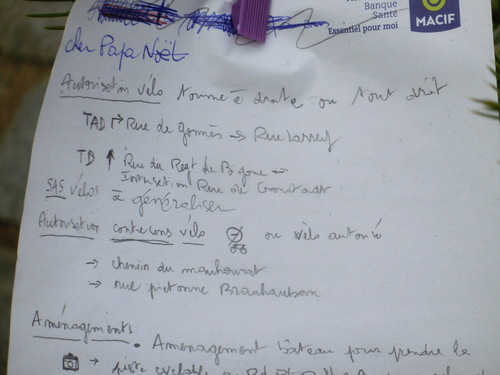 Banque
Santé
Essentiel pour moi
MACIF
du Papa Noël
Autorisation vélo tourne à droite ou tout droit
TAD Rue de → Rue Larrey
TD ↑ Rue du Regt de Bigorre →
Intersection Rue de
SAS vélos à généraliser
Autorisation contresens vélo ou vélo autorisé
→ chemin du
→ rue piétonne Brauhauban
Aménagements • Aménagement bateau pour prendre la
→ piste cyclable